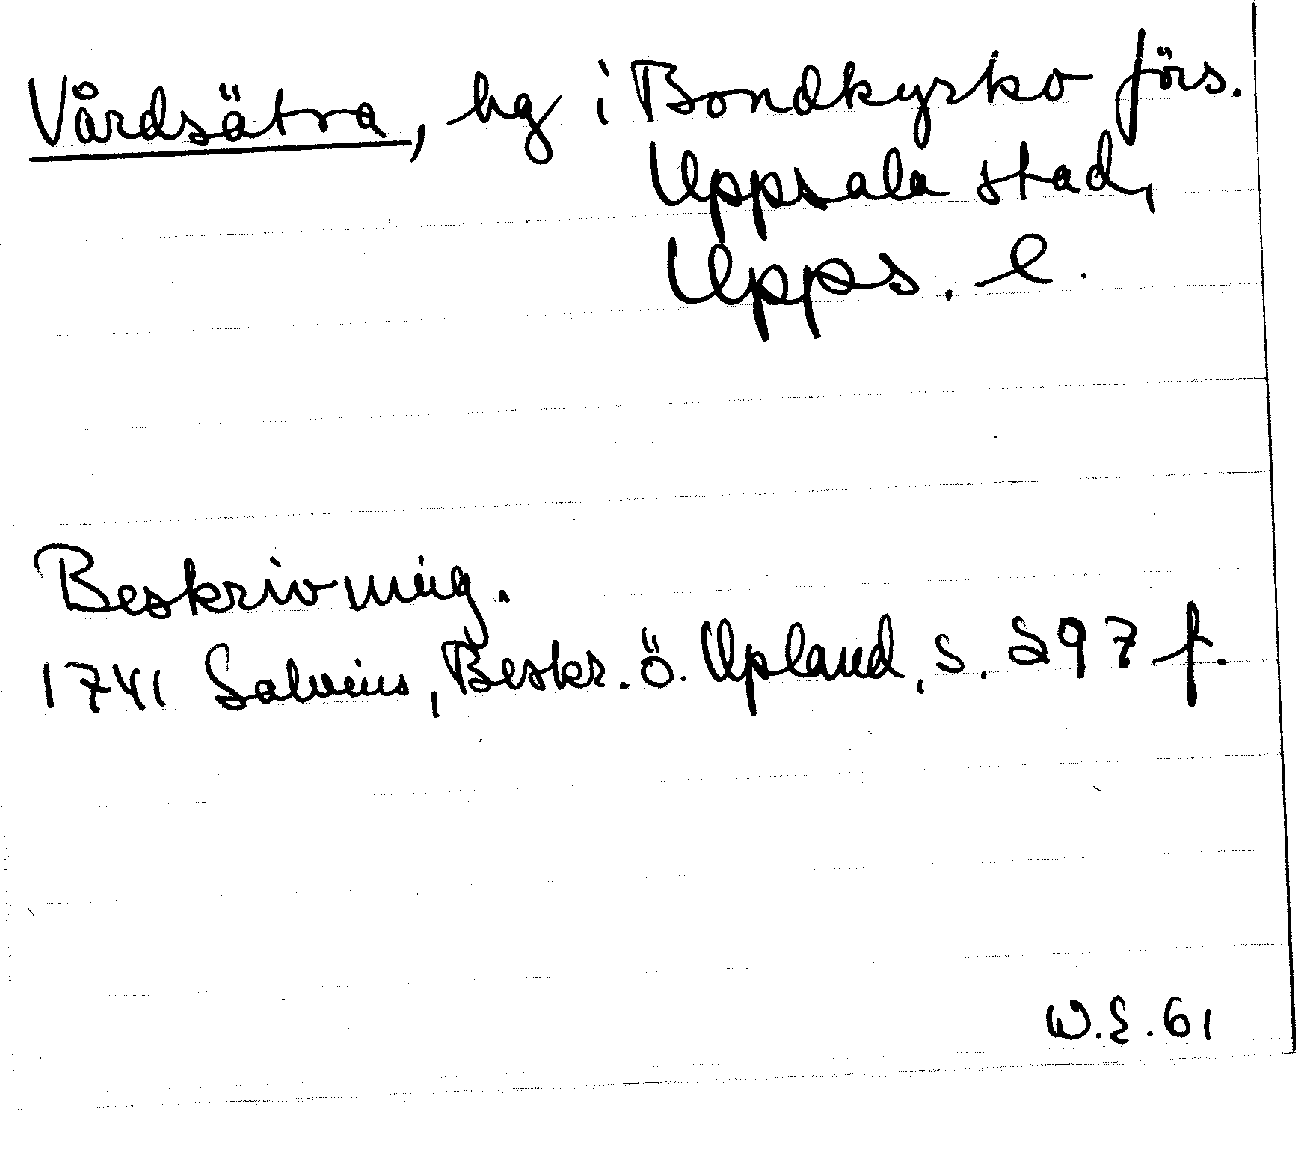 Vårdsätra, hg i Bondkyrko förs.
Uppsala stad,
Upps. l.
Beskrivning.
1741 Salvius, Beskr. ö. Upland, s. 297 f.
W.E. 61